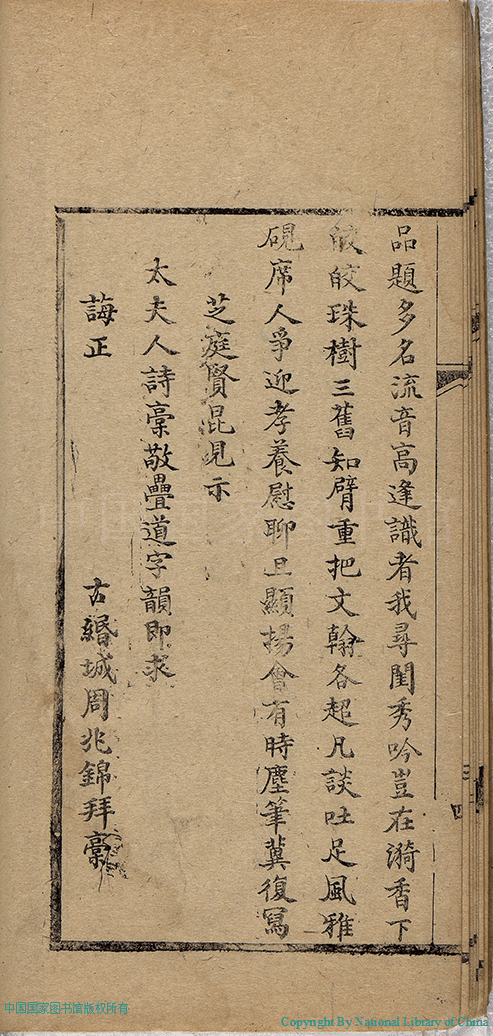 品題多名流音高逢識者我尋閨秀吟豈在漪香下
皎皎珠樹三舊知臂重把文翰各超凡談吐足風雅
硯席人爭迎孝養慰聊且顯揚會有時塵筆冀復寫
芝庭賢昆見示
太夫人詩稾敬疊道字韻即求
誨正
古緡城周兆錦拜稾
四
中国国家图书馆版权所有
Copyright By National Library of China